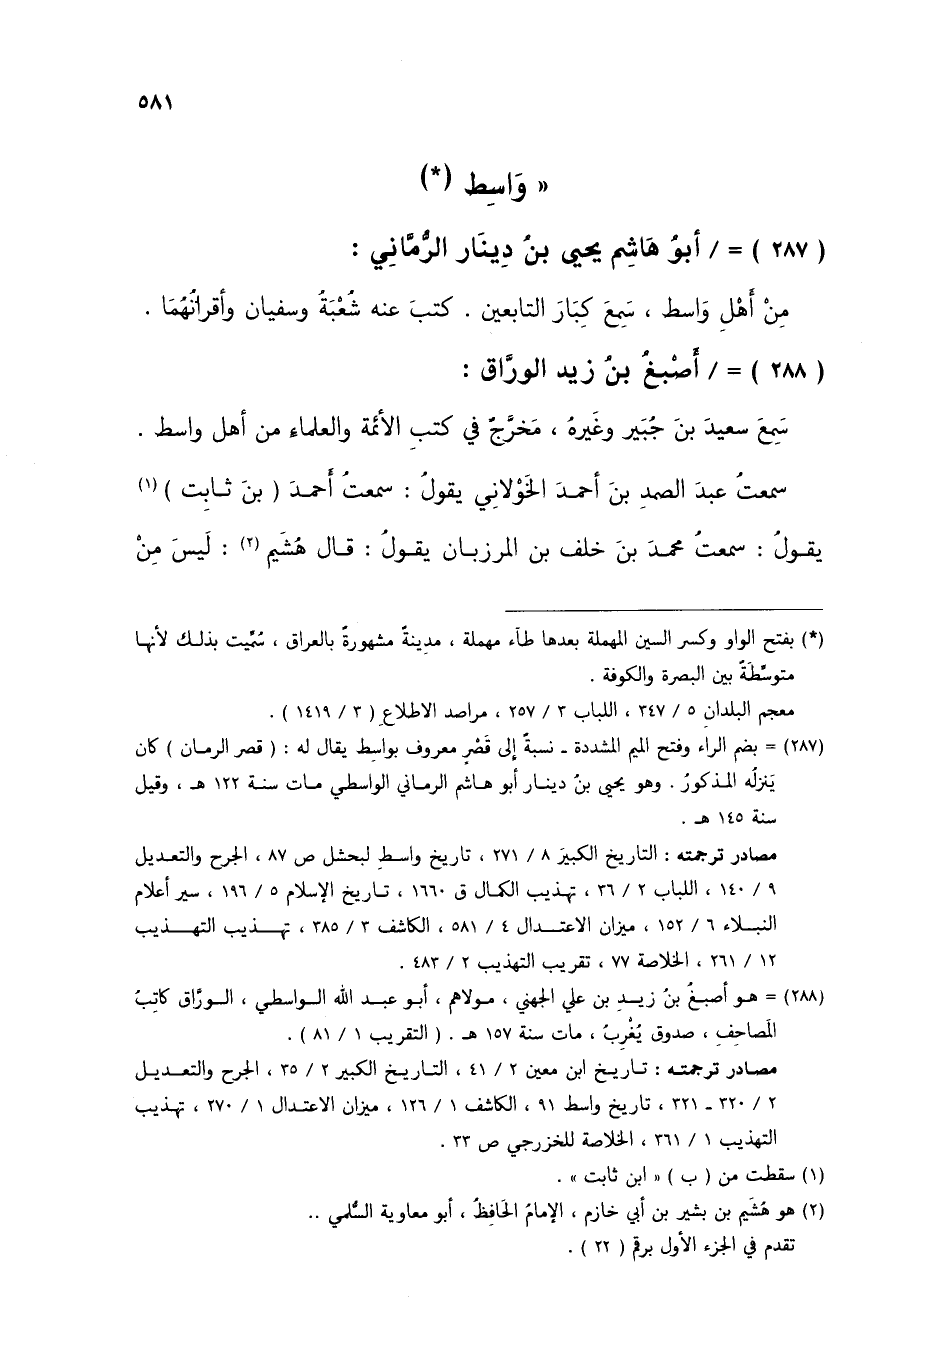 ٥٨١
« وَاسِط (*)
( ٢٨٧ ) = / أبوُ هَاشِم يحيى بنُ دِينَار الرُّمَّانِي :
مِنْ أَهْلِ وَاسط ، سَمِعَ كِبَارَ التابعين . كتبَ عنه شُعْبَةُ وسفيان وأقرانُهُمَا .
( ٢٨٨ ) = / أَصْبغُ بنُ زيد الورَّاق :
سَمِعَ سعيدَ بنَ جُبَير وغَيرهُ ، مَخرَّجٌ في كتبِ الأئمة والعلماء من أهل واسط .
سمعتُ عبدَ الصمدِ بنَ أحمدَ الخَوْلاني يقولُ : سمعتُ أَحمدَ ( بنَ ثَابِت ) (١)
يقولُ : سمعتُ محمدَ بنَ خلف بن المرزبان يقولُ : قال هُشَيم (٢) : لَيسَ مِنْ
(*) بفتح الواو وكسر السين المهملة بعدها طآء مهملة ، مدينةٌ مشهورةٌ بالعراق ، سُمِّيت بذلك لأنها
متوسِّطَةٌ بين البصرة والكوفة .
معجم البلدان ٥ / ٣٤٧ ، اللباب ٣ / ٢٥٧ ، مراصد الاطلاع ( ٣ / ١٤١٩ ) .
(٢٨٧) = بضم الراء وفتح الميم المشددة ـ نسبةٌ إلى قَصْرٍ معروف بواسط يقال له : ( قصر الرمان ) كان
يَنزلُه المذكورُ . وهو يحيى بنُ دينار أبو هاشم الرماني الواسطي مات سنة ١٢٢ هـ ، وقيل
سنة ١٤٥ هـ .
مصادر ترجمته : التاريخ الكبير ٨ / ٢٧١ ، تاريخ واسط لبحشل ص ٨٧ ، الجرح والتعديل
٩ / ١٤٠ ، اللباب ٢ / ٣٦ ، تهذيب الكمال ق ١٦٦٠ ، تاريخ الإسلام ٥ / ١٩٦ ، سير أعلام
النبلاء ٦ / ١٥٢ ، ميزان الاعتدال ٤ / ٥٨١ ، الكاشف ٣ / ٣٨٥ ، تهذيب التهذيب
١٢ / ٢٦١ ، الخلاصة ٧٧ ، تقريب التهذيب ٢ / ٤٨٣ .
(٢٨٨) = هو أصبغُ بنُ زيدِ بن علي الجهني ، مولاهم ، أبو عبد الله الواسطي ، الورَّاق كاتِبُ
المَصاحِفِ ، صدوق يُغْربُ ، مات سنة ١٥٧ هـ . ( التقريب ١ / ٨١ ) .
مصادر ترجمته : تاريخ ابن معين ٢ / ٤١ ، التاريخ الكبير ٢ / ٣٥ ، الجرح والتعديل
٢ / ٣٢٠ ـ ٣٢١ ، تاريخ واسط ٩١ ، الكاشف ١ / ١٢٦ ، ميزان الاعتدال ١ / ٢٧٠ ، تهذيب
التهذيب ١ / ٣٦١ ، الخلاصة للخزرجي ص ٣٣ .
(١) سقطت من ( ب ) « ابن ثابت » .
(٢) هو هُشَيم بن بشير بن أبي خازم ، الإمامُ الحَافِظُ ، أبو معاوية السُّلمي ..
تقدم في الجزء الأول برقم ( ٢٢ ) .